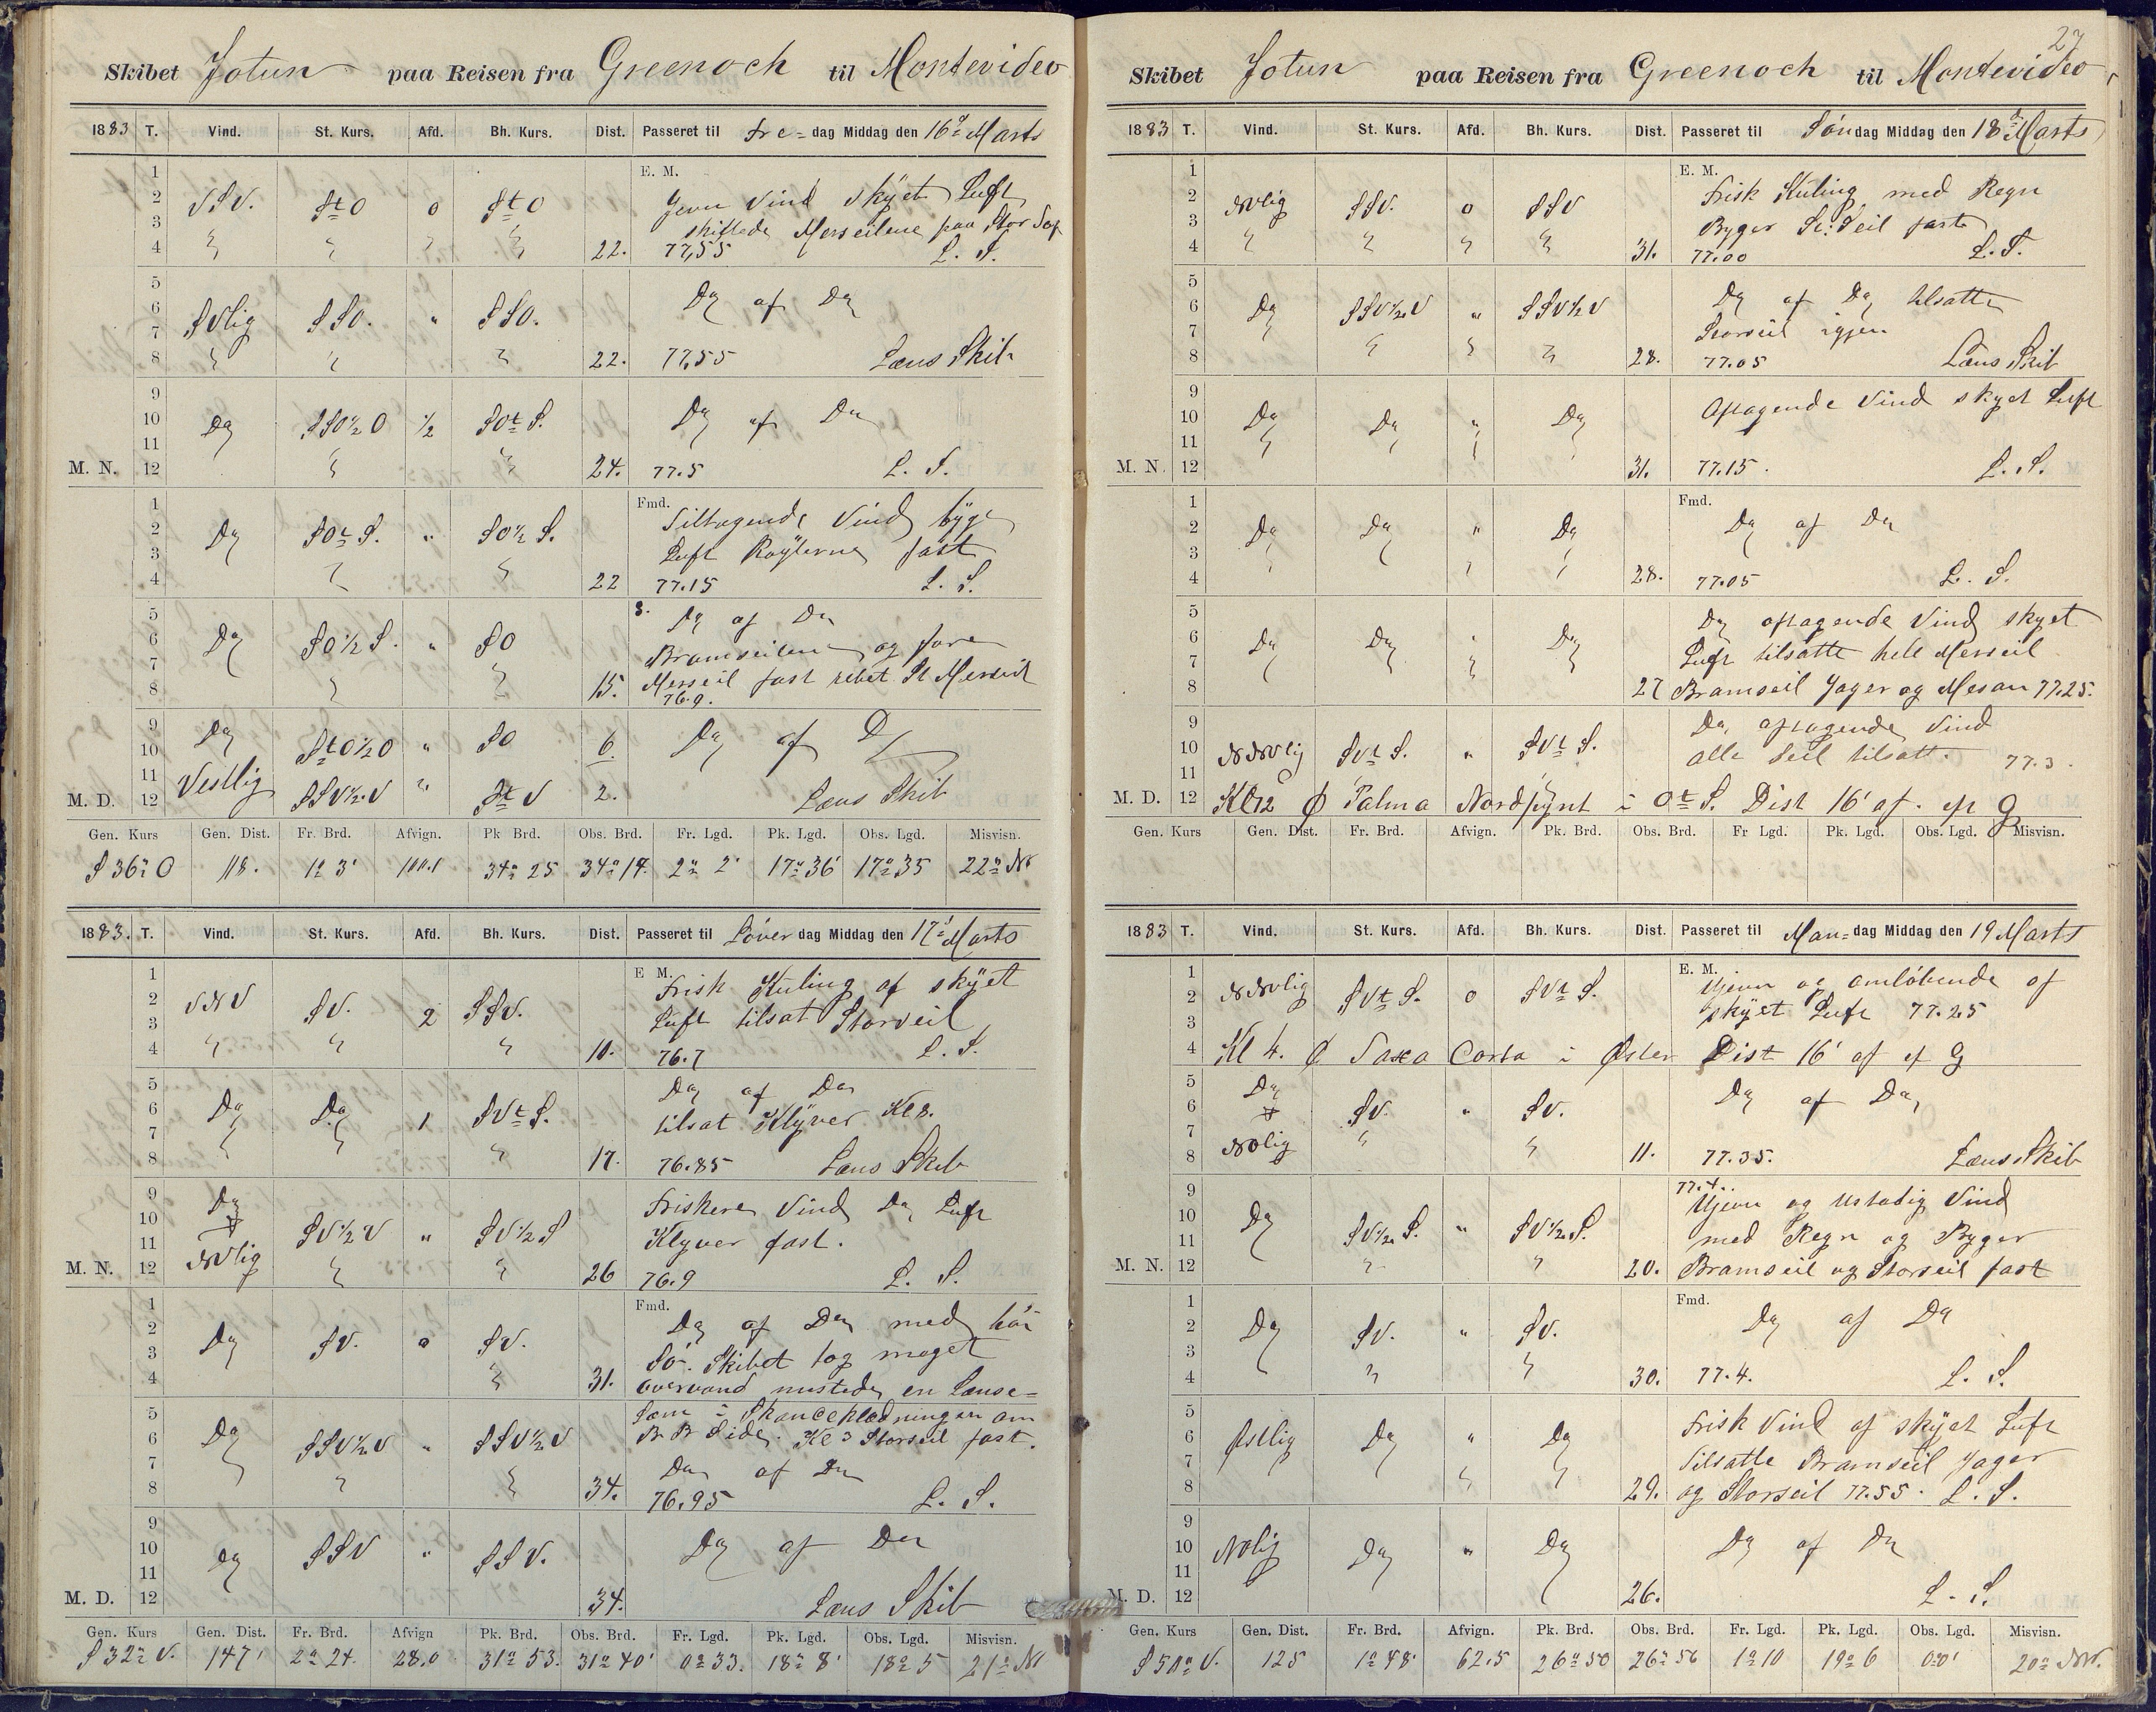 Skibet Jotun paa Reisen fra Greenock til Montevideo
1883 T. Vind. St. Kurs. Afd. Bh. Kurs. Dist. Passeret til Fre=dag Middag den 16d Marts
1 E. M.
2 VSV. StO 0 StO Jevn Vind skÿet Luft
3 skiftede Merseilene paa Stor Top
4 22. 77,55 L. S.
5 Do af Do
6 SVlig SSO. " SSO.
7
8 22. 77,55 Læns Skib
9
10 Do SSO½O ½ SOtS. Do af Do
11
M. N. 12 24. 77.5 L. S.
1 Fmd.
2 Do SOtS. " SO½S. Tiltagende Vind bÿge
3 Luft Røÿlerne fast
4 22 77.15 L. S.
5 Do af Do
6 Do SO½S. " SO Bramseilene og fore
7 Merseil fast rebet St Merseil
8 15. 76.9.
9 Do StO½O " SO 6. Do af Do
10
11 Vestlig SSV½V " StV 2.
M. D. 12 Læns Skib
Gen. Kurs Gen. Dist. Fr. Brd. Afvign. Pk Brd. Obs. Brd. Fr. Lgd. Pk. Lgd. Obs. Lgd. Misvisn.
S 36° O 118. 1° 3' 100.1 34° 25 34° 14. 2° 2' 17° 36' 17° 35 22° NV
1883. T. Vind. St. Kurs. Afd. Bh. Kurs. Dist. Passeret til Løver dag Middag den 17d Marts
1 E M.
2 VNV SV. 2 SSV. Frisk Kuling af skÿet
3 Luft tilsat Storseil
4 10. 76.7 L. S.
5 Do af Do
6 Do Do 1 SVtS. tilsat Klÿver Kl 8.
7
8 17. 76.85 Læns Skib
9 Do Friskere Vind Do Luft
10 SV½V " SV½S Klyver fast.
11
M. N. 12 NVlig 26 76.9 L. S.
1 Fmd.
2 Do SV. 0 SV. Do af Do med høi
3 Sö. Skibet tog meget
4 31. overvand mistede en Lænse=
5 Skandseklædningen om
6 Do SSV½V " SSV½V B B Side. Kl 3 Storseil fast.
7 Do af Do
8 34. 76.95 L. S.
9
10 Do SSV " SSV. Do af Do
11
M. D. 12 34. Læns Skib
Gen. Kurs Gen. Dist. Fr. Brd. Afvign Pk. Brd. Obs. Brd. Fr. Lgd. Pk. Lgd. Obs. Lgd. Misvisn.
S 32° V. 147' 2° 24. 28.0 31° 53. 31° 40' 0° 33. 18° 8' 18° 5 21° NV
27
Skibet Jotun paa Reisen fra Greenock til Montevideo
1883 T. Vind. St. Kurs. Afd. Bh. Kurs. Dist. Passeret til Søndag Middag den 18d Marts
1 E. M.
2 NVlig SSV. 0 SSV Frisk Kuling med Regn
3 Byger St. Seil fast
4 31. 77.00 L. S.
5 Do af Do tilsatte
6 Do SSV½V " SSV½V
7 Storseil igjen
8 28. 77.05 Læns Skib
9
10 Do Do " Do Aftagende Vind skyet Luft
11
M. N. 12 31. 77.15. L. S.
1 Fmd.
2 Do Do " Do Do af Do
3
4 28. 77.05 L. S.
5 Do aftagende Vind skyet
6 Do Do " Do Luft tilsatte hele Merseil
7
8 27 Bramseil Jager og Mesan 77.25.
9 Do, aftagende Vind
10 NNVlig SVtS. " SVtS. alle Seil tilsatt. 77.3.
11
M. D. 12 Kl 12 Ø Palma Nordpynt i OtS. Dist 16' af.
Gen. Kurs Gen. Dist. Fr. Brd. Afvign. Pk. Brd. Obs. Brd. Fr Lgd. Pk. Lgd. Obs. Lgd. Misvisn.
1883 T. Vind. St. Kurs. Afd. Bh. Kurs. Dist. Passeret til Man=dag Middag den 19 Marts
1 E. M.
2 NNVlig SVtS. 0 SVtS. Ujevn og omløbende af
3 skÿet Luft 77.25
4 Kl 4. Ø i Øster Dist 16' af
5 Do Do af Do,
6 SV. " SV.
7
8 NOlig 11. 77.35. Læns Skib
9 77.4. Ujevn og ustadig Vind
10 Do SV½S. " SV½S. med Regn og Byger
11
M. N. 12 20. Bramseil og Storseil fast
1 Fmd.
2 Do SV. " SV. Do af Do
3
4 30. 77.4. L. S.
5 Frisk Vind af skÿet Luft
6 Østlig Do " Do
7 Tilsatte Bramseil Jager
8 29. og Storseil 77.55. L. S.
9
10 NOlig Do " Do Do af Do
11
M. D. 12 26. L. S.
Gen. Kurs Gen. Dist. Fr. Brd. Afvign. Pk. Brd. Obs. Brd. Fr Lgd. Pk. Lgd. Obs. Lgd. Misvisn.
S 50° V. 125 1° 48' 62.5 26° 50 26° 56 1° 10 19° 6 0°0' 20° NV.